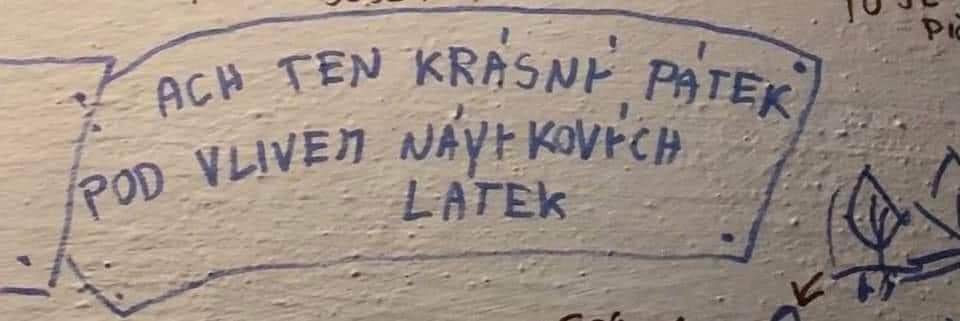 ACH TEN KRÁSNÝ PÁTEK
POD VLIVEM NÁVYKOVÝCH
LATEK